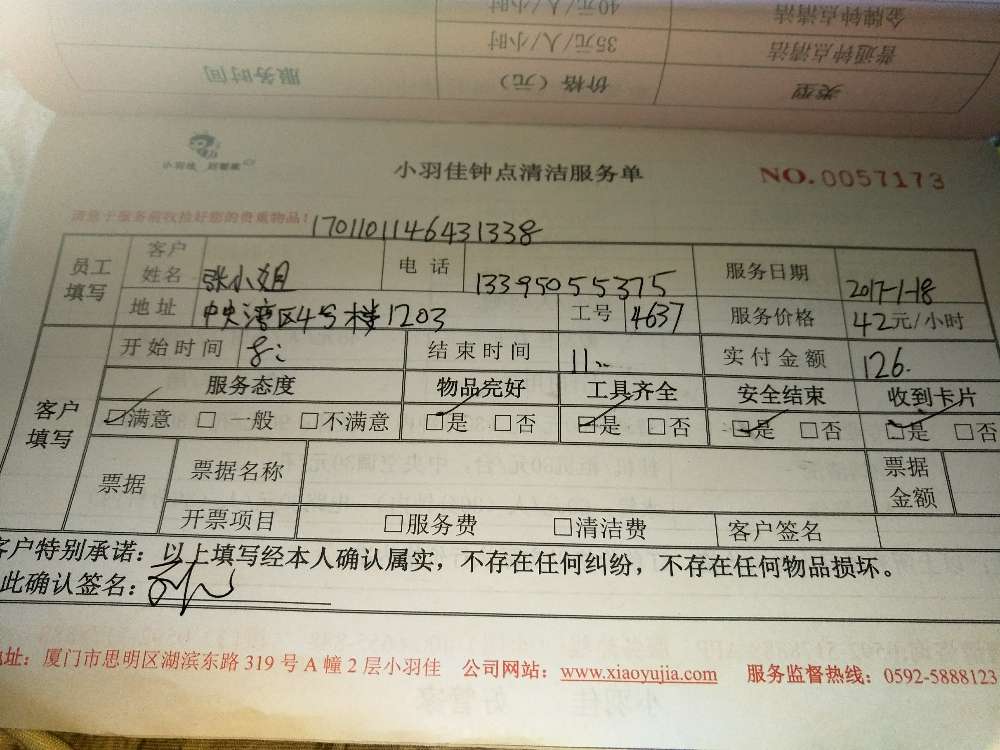 金牌钟点清洁 40元/人/小时
普通钟点清洁 35元/人/小时
类型 价格（元） 服务时间
小羽佳 好管家
小羽佳钟点清洁服务单
NO.0057173
请您于服务前收拾好您的贵重物品！
1701101146431338
员工填写 客户姓名 张小姐 电话 13395055375 服务日期 2017-1-18
地址 中央湾区4号楼1203 工号 4637 服务价格 42元/小时
客户填写 开始时间 8: 结束时间 11: 实付金额 126.
服务态度 物品完好 工具齐全 安全结束 收到卡片
☑满意 □一般 □不满意 ☑是 □否 ☑是 □否 ☑是 □否 ☑是 □否
票据 票据名称 票据金额
开票项目 □服务费 □清洁费 客户签名
客户特别承诺：以上填写经本人确认属实，不存在任何纠纷，不存在任何物品损坏。
此确认签名：
地址：厦门市思明区湖滨东路 319 号 A 幢 2 层小羽佳 公司网站：www.xiaoyujia.com 服务监督热线：0592-5888123